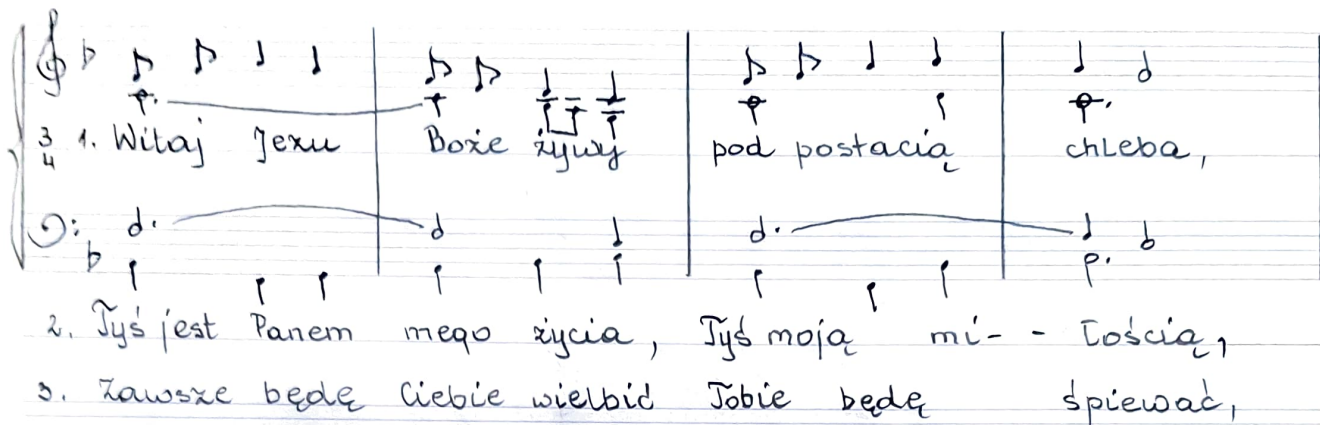 3 4 1. Witaj Jezu Boże żywy pod postacią chleba,
2. Tyś jest Panem mego życia, Tyś moją mi-- łością,
3. Zawsze będę Ciebie wielbić Tobie będę śpiewać,